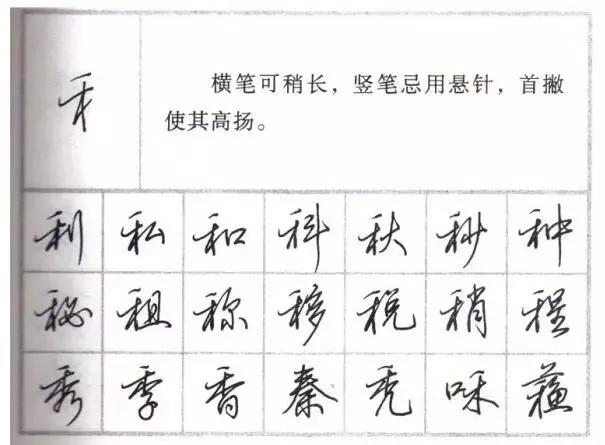 禾
横笔可稍长，竖笔忌用悬针，首撇
使其高扬。
利 私 和 科 秋 秒 种
秘 租 称 移 税 稍 程
秀 季 香 秦 秃 味 蕴